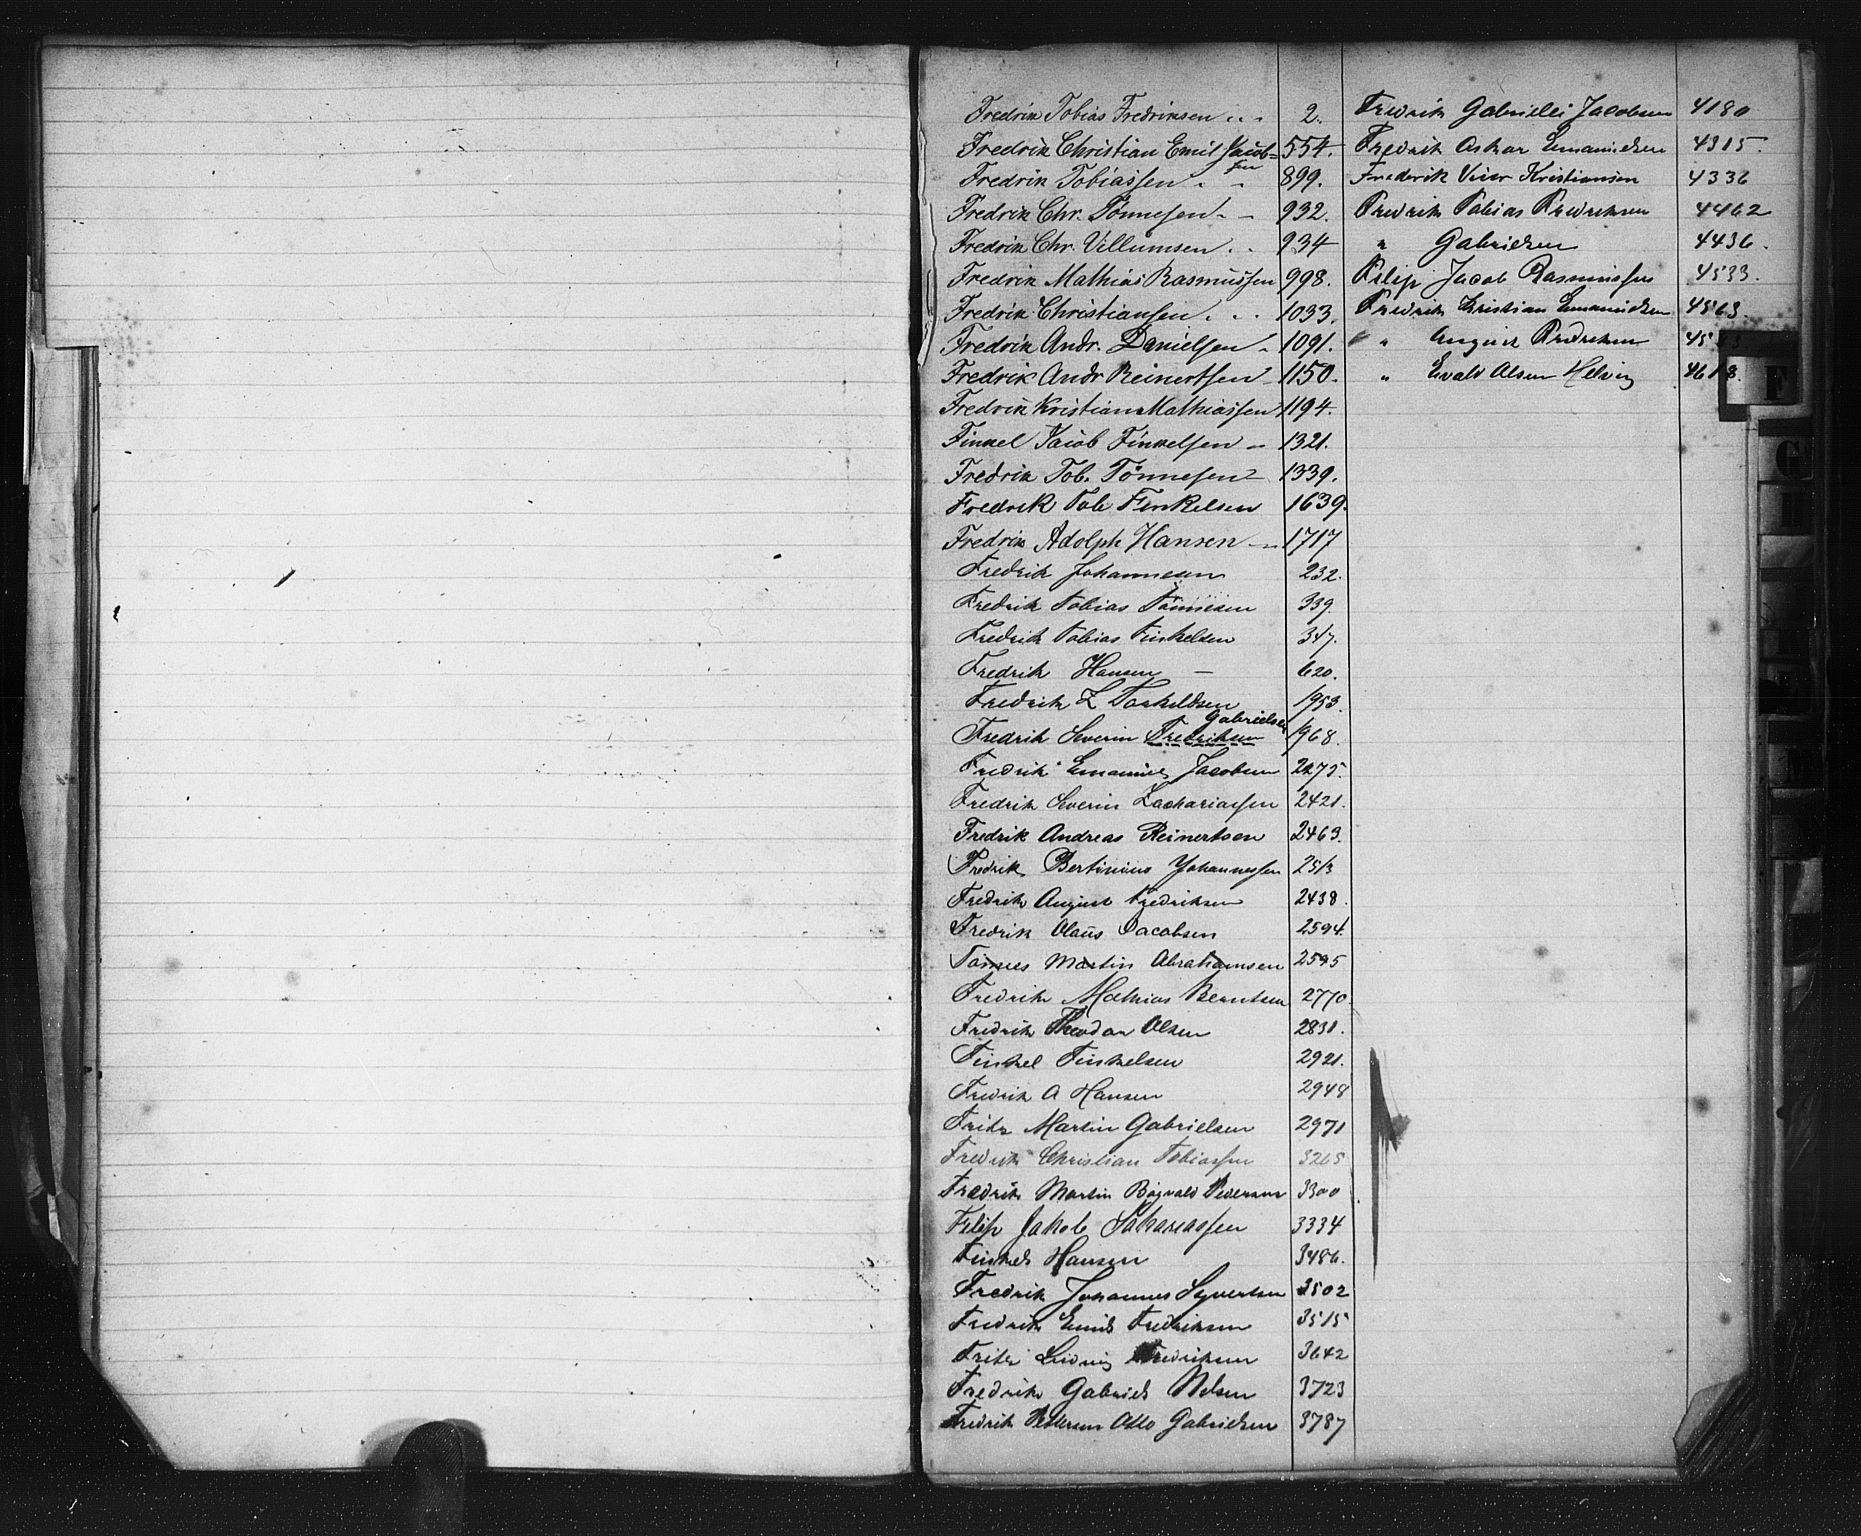 Fredrik Tobias Fredriksen 2.
Fredrik Christian Emil Jacobsen 554.
Fredrik Tobiassen 899.
Fredrik Chr. Tönnesen 932.
Fredrik Chr. Villumsen 934
Fredrik Mathias Rasmussen 998.
Fredrik Christiansen 1033.
Fredrik Andr. Danielsen 1091.
Fredrik Andr Reinertsen 1150.
Fredrik Kristian Mathiassen 1194.
Finkel Jacob Finkelsen 1321.
Fredrik Tob. Tönnesen 1339.
Fredrik Tob Finkelsen 1639.
Fredrik Adolph Hansen 1717
Fredrik Johannesen 232.
Fredrik Tobias Tönnesen 339.
Fredrik Tobias Finkelsen 347.
Fredrik Hansen 620.
Fredrik L Torkeldsen 1953.
Gabrielsen
Fredrik Severin Fredriksen 1968.
Fredrik Emanuel Jacobsen 2275.
Fredrik Severin Zachariassen 2421.
Fredrik Andreas Reinertsen 2463.
Fredrik Bertinius Johannessen 2513
Fredrik August Fredriksen 2438.
Fredrik Olaus Jacobsen 2594.
Tönnes Martin Abrahamsen 2595
Fredrik Mathias Berntsen 2770.
Fredrik Theodor Olsen 2831.
Finkel Finkelsen 2921.
Fredrik A Hansen 2948
Fritz Martin Gabrielsen 2971
Fredrik Christian Tobiassen 3265
Fredrik Martin Pedersen 3300
Filip Jakob Sakariassen 3334
Finkel Hansen 3486.
Fredrik Johannes Syvertsen 3502
Fredrik Emil Fredriksen 3515
Fritz Ludvig Fredriksen 3642
Fredrik Gabriel Nelsen 3723
Fredrik Pettersen Otto Gabrielsen 3787
Fredrik Gabriel Jacobsen 4180
Fredrik Oskar Emanuelsen 4315.
Frederik Kristiansen 4336
Fredrik Tobias Fredriksen 4462
" Gabrielsen 4436.
Filip Jacob Rasmussen 4533.
Fredrik Kristian Emanuelsen 4563.
" August Fredriksen
" Evald Olsen 4618.
F
G